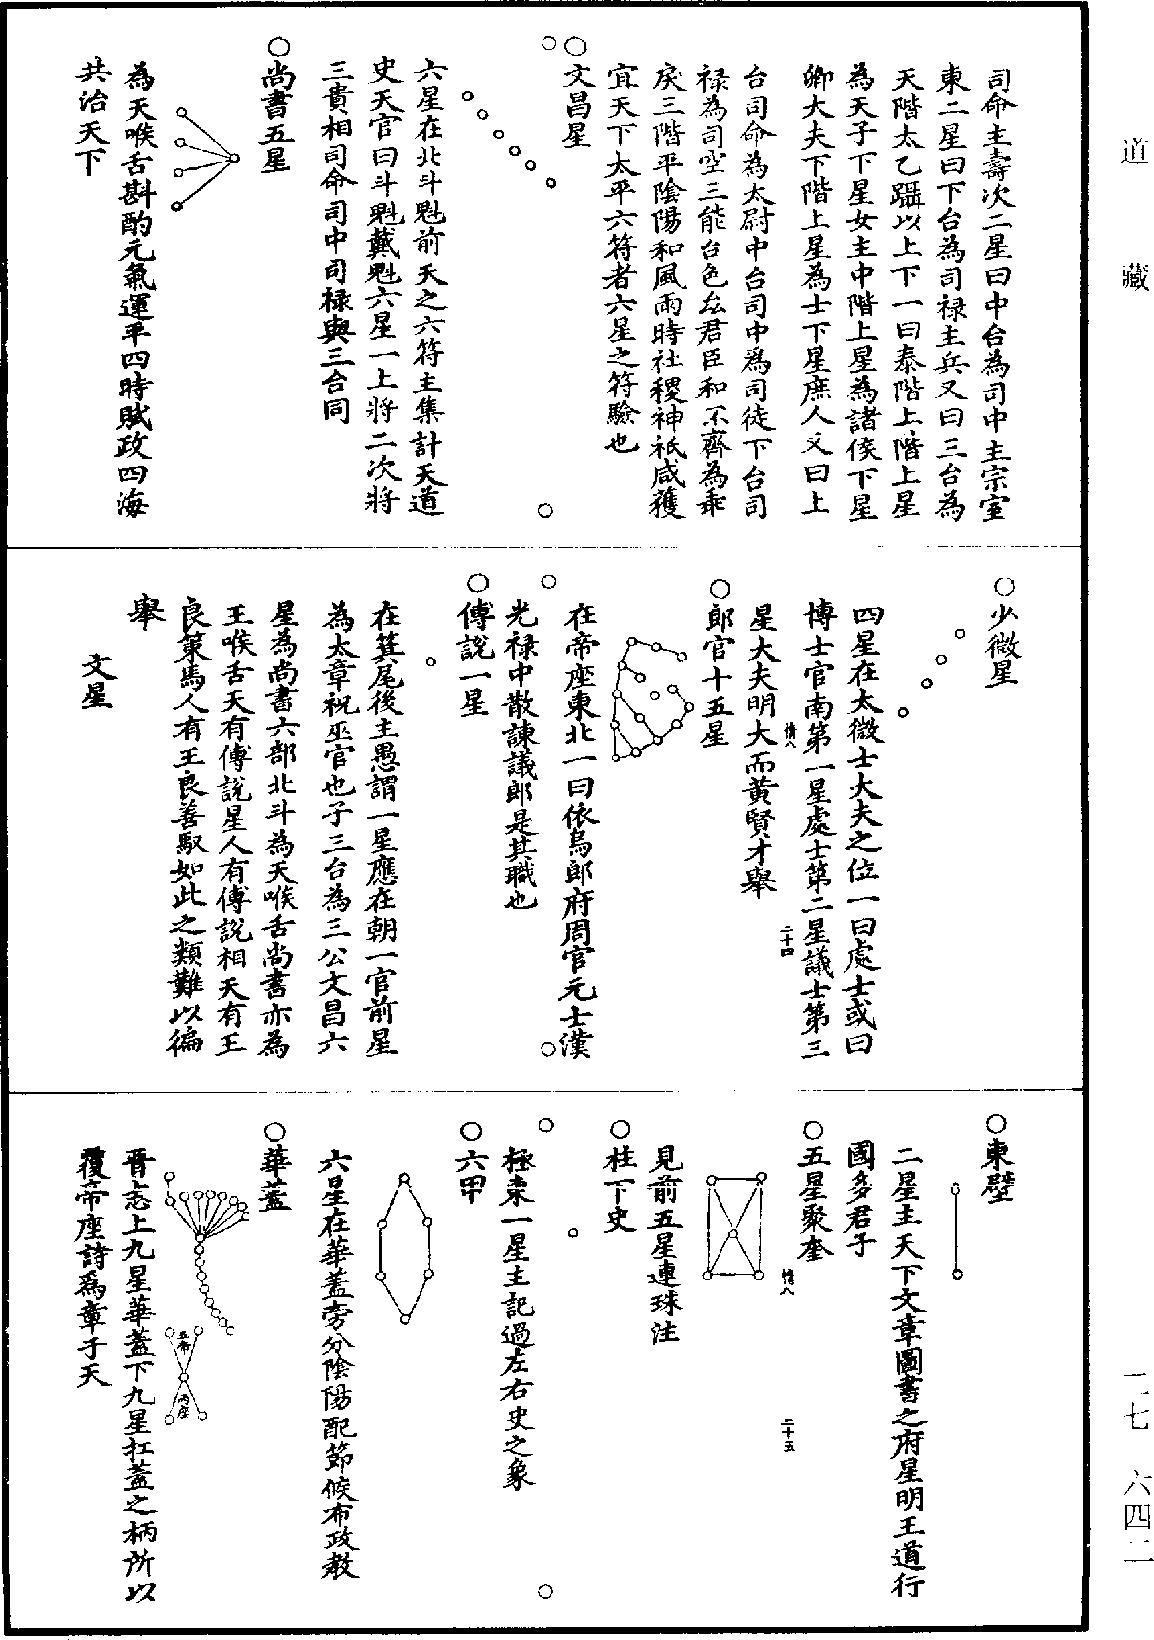 司命主壽次二星曰中台為司中主宗室
東二星曰下台為司禄主兵又曰三台為
天階太乙躡以上下一曰泰階上階上星
為天子下星女主中階上星為諸侯下星
卿大夫下階上星為士下星庶人又曰上
台司命為太尉中台司中為司徒下台司
禄為司空三能台色齊君臣和不齊為乖
戾三階平陰陽和風雨時社稷神祇咸獲
宜天下太平六符者六星之符驗也
○文昌星
六星在北斗魁前天之六符主集計天道
史天官曰斗魁戴魁六星一上將二次將
三貴相司命司中司祿與三台同
○尚書五星
為天喉舌斟酌元氣運平四時賦政四海
共治天下
○少微星
四星在太微士大夫之位一曰處士或曰
博士官南第一星處士第二星議士第三
星大夫明大而黃賢才舉
情八
二十四
○郎官十五星
在帝座東北一曰依烏郎府周官元士漢
光禄中散諫議郎是其職也
○傅說一星
在箕尾後主愚謂一星應在朝一官前星
為太章祝巫官也子三台為三公文昌六
星為尚書六部北斗為天喉舌尚書亦為
王喉舌天有傅說星人有傅說相天有王
良策馬人有王良善馭如此之類難以徧
舉
文星
○東壁
二星主天下文章圖書之府星明王道行
國多君子
○五星聚奎
情八
二十五
見前五星連珠注
○柱下史
極東一星主記過左右史之象
○六甲
六星在華蓋旁分陰陽配節候布政教
○華蓋
五帝
內座
晉志上九星華蓋下九星扛蓋之柄所以
覆帝座詩為章于天
道藏
二七 六四二